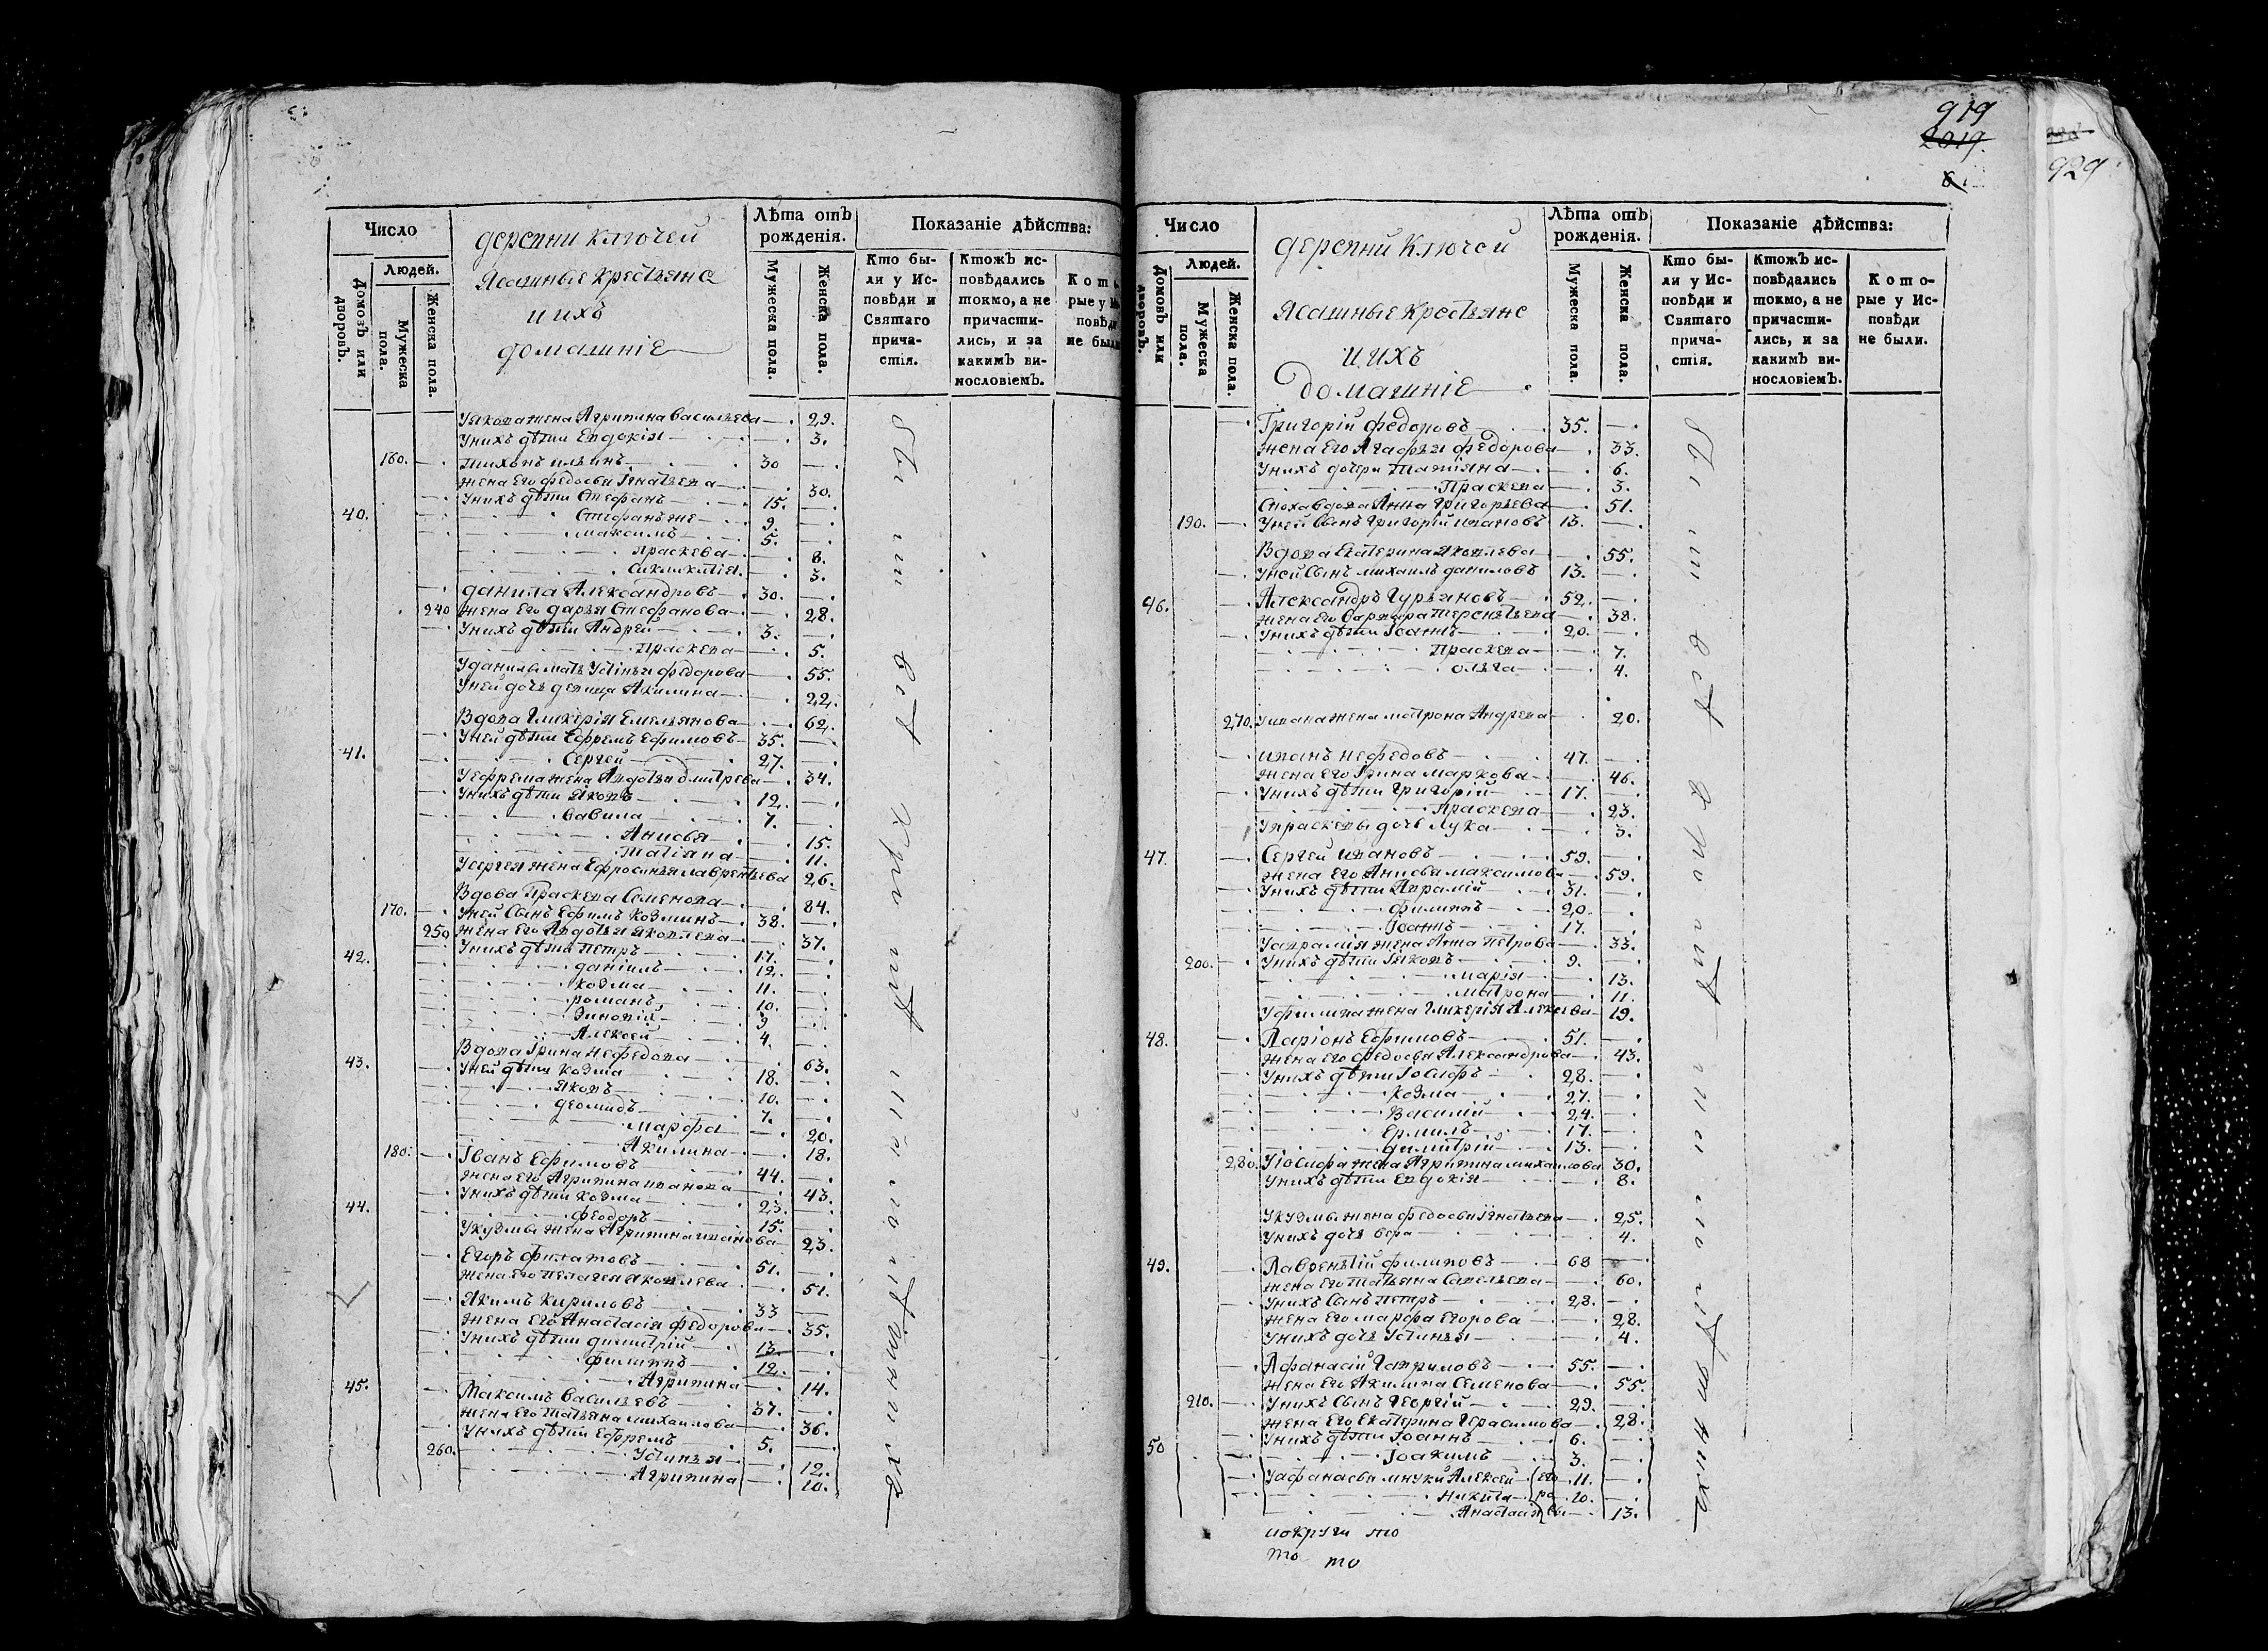 Число
деревни Ключей
Ясашные крестьяне
и ихъ
домашніе
Лѣта отъ рожденія.
Показаніе дѣйства:
Домовъ или дворовъ.
Людей.
Мужеска пола.
Женска пола.
Мужеска пола.
Женска пола.
Кто были у Исповѣди и Святаго причастія.
Ктожъ исповѣдались токмо, а не причастились, и за какимъ винословіемъ.
Которые у Исповѣди не были
Уякова жена Агрипина Васильева — 29.
Унихъ дѣти Евдокія — 3.
160. — Тихонъ Ильинъ 30 —
жена Его федосья Игнатьева — 30.
Унихъ дѣти Стефанъ 15. —
40. Стефанъ же 9. —
максимъ 5. —
праскева — 8.
3.
данила Александровъ 30. —
240 жена Его дарья Стефанова — 28.
Унихъ дѣти Андрей 3. —
Праскева — 5.
Уданилы мать Устинья федорова — 55.
Уней дочь девица Акилина — 22.
Вдова Гликерія Емельянова — 62.
Уней дѣти Ефремъ Ефимовъ 35. —
41. Сергей 27. —
Уефрема жена Авдотья дмитрева — 34.
Унихъ дѣти Яковъ 12. —
Вавила 7. —
Анисья — 15.
Татіана — 11.
Усергея жена Ефросинья лаврентьева 26.
Вдова Праскева Семенова — 84.
170. — Уней Сынъ Ефимъ Козминъ 38. —
250 жена Его Авдотья яковлева — 37.
42. Унихъ дѣти Петръ 17. —
даніилъ 12. —
козма 11. —
романъ 10. —
Зиновій 9 —
Алексей 4. —
Вдова Ірина Нефедова — 63.
43. Уней дѣти Козма 18. —
Яковъ 10. —
деомидъ 7. —
Марфа — 20.
Акилина — 18.
180. — Іванъ Ефимовъ 44. —
жена Его Агрипина иванова — 43.
44. Унихъ дѣти козма 23. —
феодоръ 15. —
Укузмы жена Агрипина иванова — 23.
Егоръ филатовъ 51. —
жена Его пелагея яковлева — 51.
Якимъ Кириловъ 33 —
жена Его Анастасія федорова — 35.
Унихъ дѣти димитрій 13. —
филиппъ 12. —
Агрипина — 14.
45. Максимъ Васильевъ 37. —
жена Его татьяна михаилова — 36.
Унихъ дѣти Ефремъ 5. —
260. Устинья — 12.
Агрипина — 10.
919
2019.
929
Число
деревни Ключей
Ясашные крестьяне
и ихъ
домашніе
Лѣта отъ рожденія.
Показаніе дѣйства:
Домовъ или дворовъ.
Людей.
Мужеска пола.
Женска пола.
Мужеска пола.
Женска пола.
Кто были у Исповѣди и Святаго причастія.
Ктожъ исповѣдались токмо, а не причастились, и за какимъ винословіемъ.
Которые у Исповѣди не были.
Григорій федоровъ 35. —
жена Его Агафья федорова — 33.
Унихъ дочери татіяна — 6.
Праскева — 3.
Сноха вдова Анна Григорьева — 51.
190. — Уней Сынъ Григорій ивановъ 13. —
Вдова Екатерина яковлева — 55.
Уней Сынъ михаилъ даниловъ 13. —
46. Александръ Гурьяновъ 52. —
жена Его Варвара терентьева — 38.
Унихъ дѣти Іоаннъ 20. —
Праскева — 7.
ольга — 4.
270. Уивана жена матрона Андрева — 20.
иванъ нефедовъ 47. —
жена Его Ірина маркова — 46.
Унихъ дѣти Григорій 17. —
Праскева — 23.
Упраскевы дочь Лука — 3.
47. Сергей ивановъ 59. —
жена Его Анисья максимова — 59.
Унихъ дѣти Аврамій 31. —
филиппъ 20. —
Іоаннъ 17. —
Уаврамія жена Анна петрова — 33.
200. — Унихъ дѣти Іяковъ 9. —
марія — 13.
матрона — 11.
Уфилипа жена Гликерія Алексева 19.
48. Ларіонъ Ефимовъ 51. —
жена Его федосья Александрова — 43.
Унихъ дѣти Іосифъ 28. —
козма 27. —
Василій 24. —
Ермилъ 17. —
димитрій 13. —
280. Уіосифа жена Агрипина михаилова 30.
Унихъ дѣти Евдокія — 8.
Укузмы жена федосья Игнатьева — 25.
Унихъ дочь вера — 4.
49. Лаврентій филиповъ 68 —
жена Его татьяна Савельева — 60.
Унихъ Сынъ петръ 28. —
жена Его марфа Егорова — 28.
Унихъ дочь Устинья — 4.
Афанасій Гавриловъ 55. —
жена Его Акилина Семенова — 55.
210. — Унихъ Сынъ Георгій 29. —
жена Его Екатерина Герасимова — 28.
50 Унихъ дѣти Іоаннъ 6. —
Іоакимъ 3. —
Уафанасья внуки Алексей 11. —
никита 10. —
Анастасія — 13.